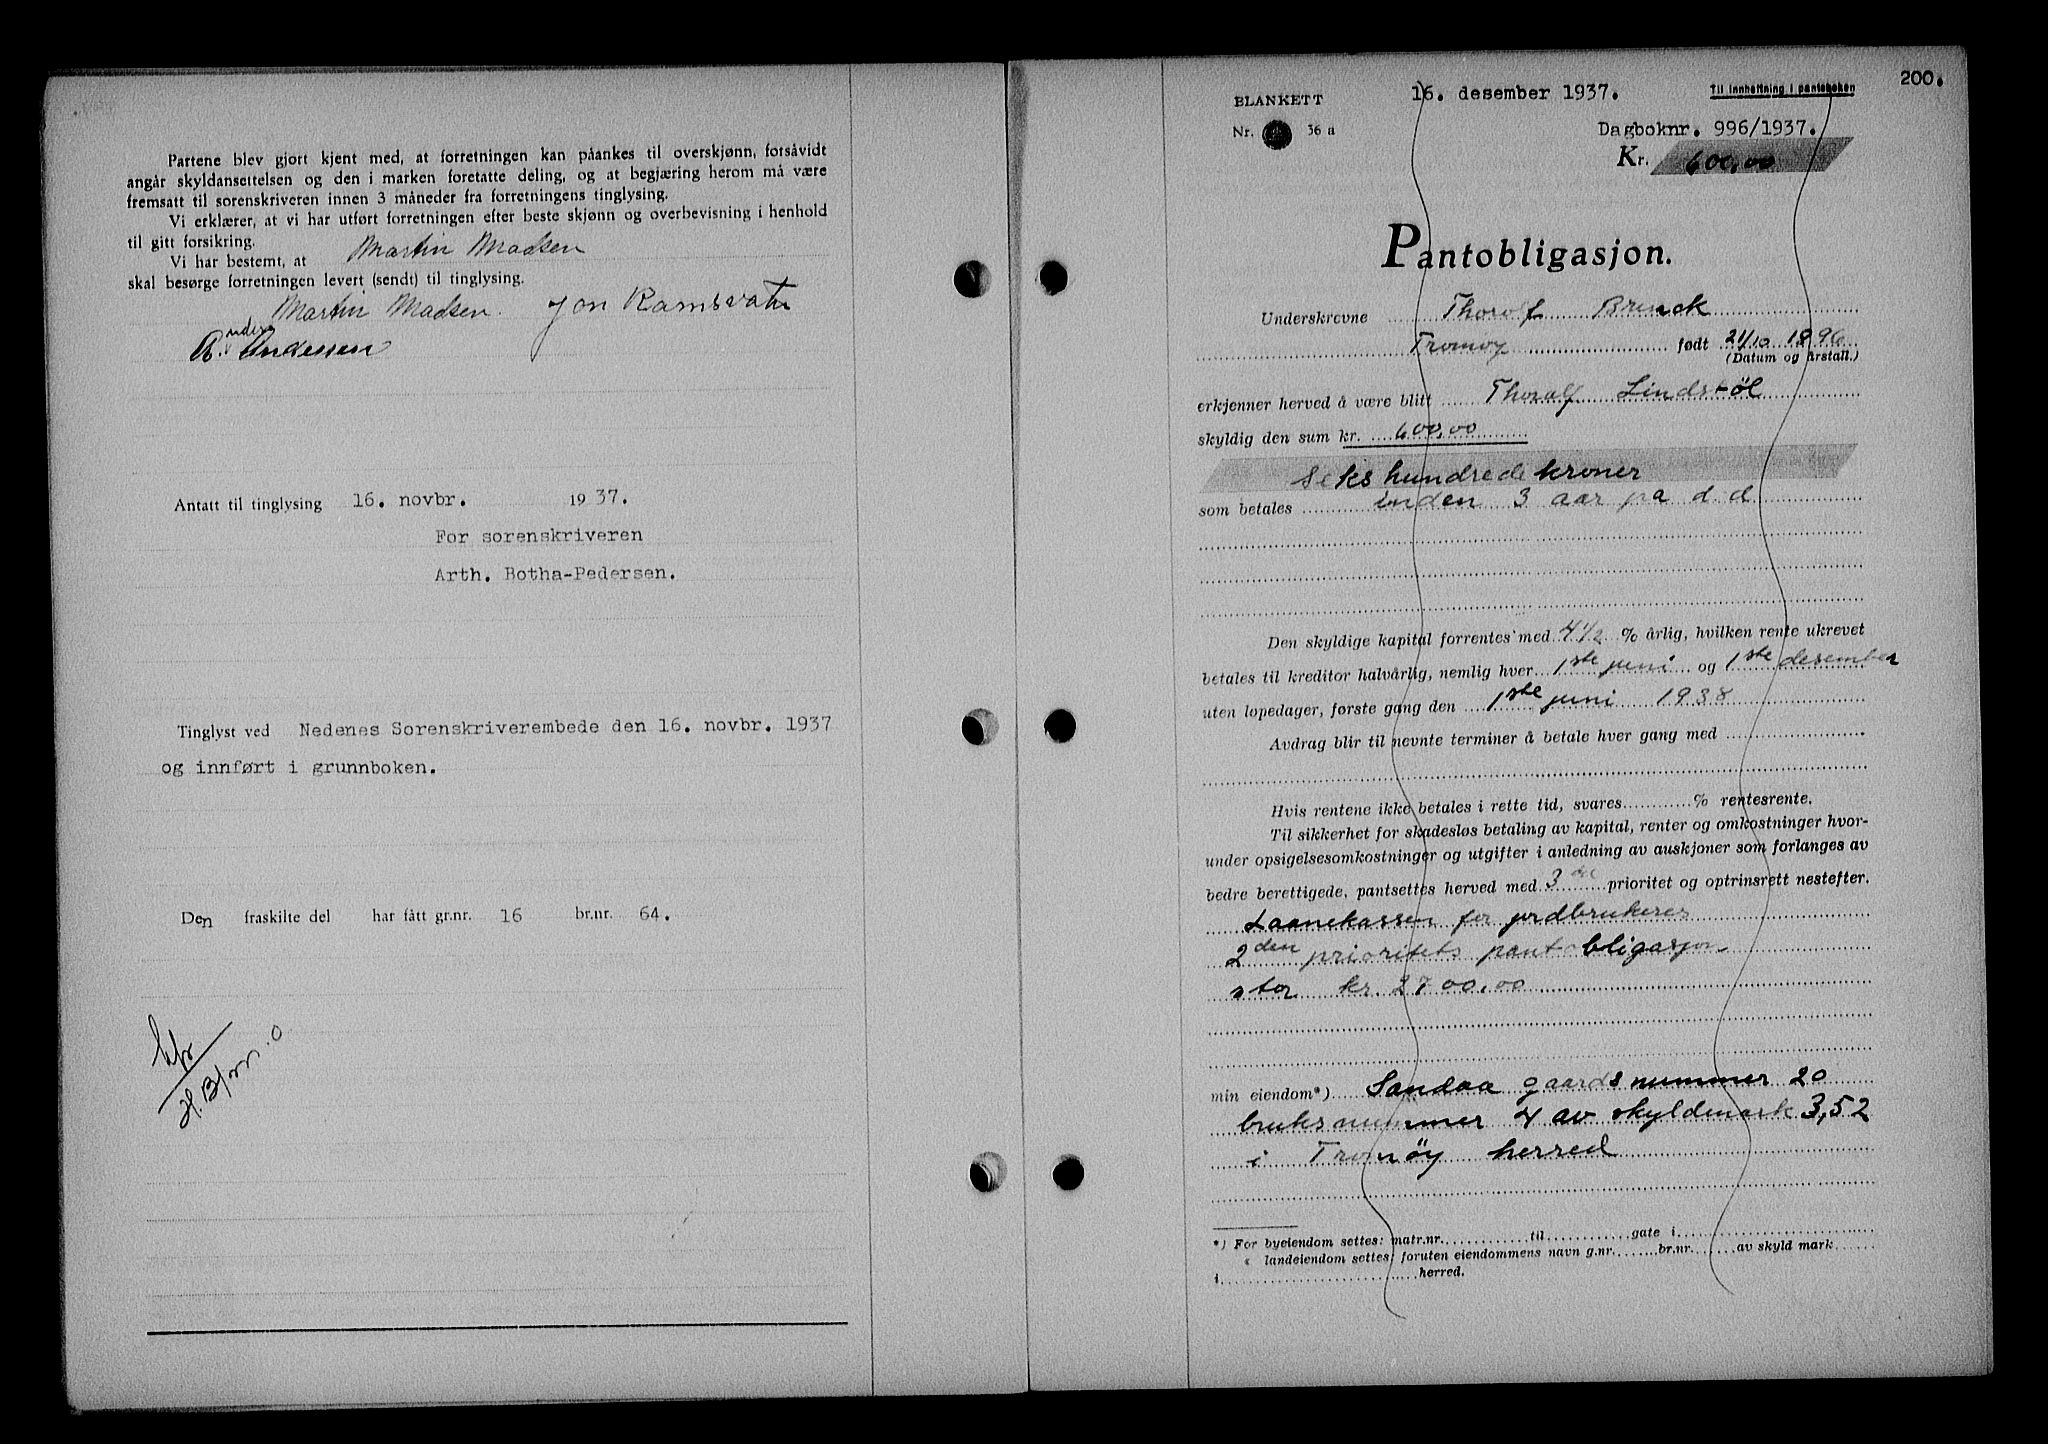 Partene blev gjort kjent med, at forretningen kan påankes til overskjønn, forsåvidt
angår skyldansettelsen og den i marken foretatte deling, og at begjæring herom må være
fremsatt til sorenskriveren innen 3 måneder fra forretningens tinglysing.
Vi erklærer, at vi har utført forretningen efter beste skjønn og overbevisning i henhold
til gitt forsikring.
Vi har bestemt, at Martin Madsen
skal besørge forretningen levert (sendt) til tinglysing.
Martin Madsen. Jon Ramsvatn
Anders Andessen
Antatt til tinglysing 16. novbr. 1937.
For sorenskriveren
Arth. Botha-Pedersen.
Tinglyst ved Nedenes Sorenskriverembede den 16. novbr. 1937
og innført i grunnboken.
Den fraskilte del har fått gr.nr. 16 br.nr. 64.
200.
BLANKETT 16. desember 1937. Til innheftning i panteboken
Nr. 36 a Dagboknr. 996/1937.
Kr. 600,00
Pantobligasjon.
Underskrevne Thorolf Brinck
Tromøy født 21/10 1896
(Datum og årstall.)
erkjenner herved å være blitt Thoralf Lindstøl
skyldig den sum kr. 600,00
Seks hundrede kroner
som betales inden 3 aar pa d d
Den skyldige kapital forrentes med 4 1/2 % årlig, hvilken rente ukrevet
betales til kreditor halvårlig, nemlig hver 1ste juni og 1ste desember
uten løpedager, første gang den 1ste juni 1938
Avdrag blir til nevnte terminer å betale hver gang med
Hvis rentene ikke betales i rette tid, svares % rentesrente.
Til sikkerhet for skadesløs betaling av kapital, renter og omkostninger hvor-
under opsigelsesomkostninger og utgifter i anledning av auskjoner som forlanges av
bedre berettigede, pantsettes herved med 3 die prioritet og optrinsrett nestefter.
Laanekassen for jordbrukeres
2den prioritets pantobligasjon
stor kr. 2700,00
min eiendom*) Sandaa gaardsnummer 20
bruksnummer 4 av skyldmark 3,52
i Tromøy herred
*) For byeiendom settes: matr.nr. til gate i
" landeiendom settes: foruten eiendommens navn g.nr. br.nr. av skyld mark
i herred.